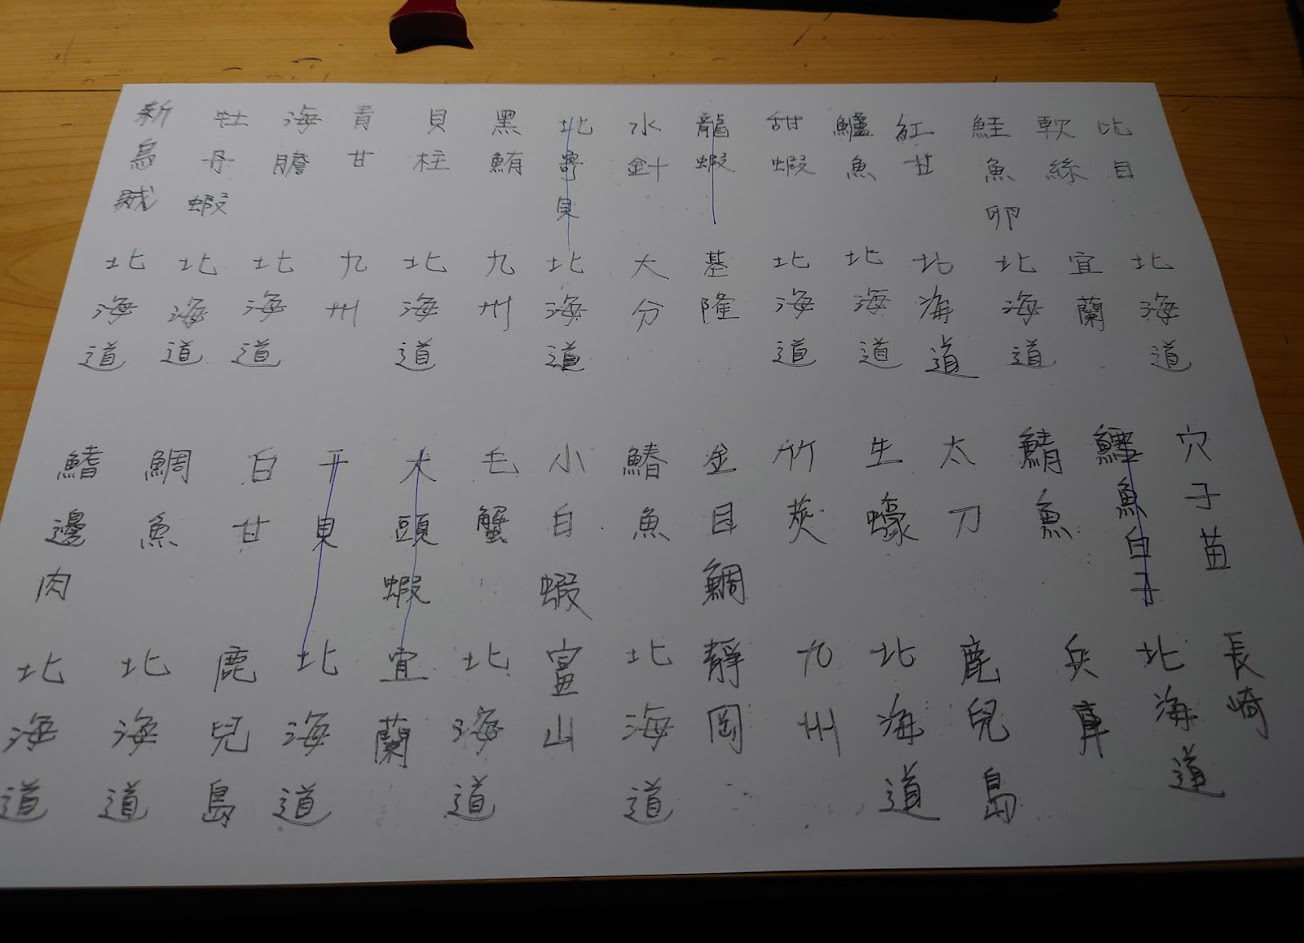 比目
北海道
軟絲
宜蘭
鮭魚卵
北海道
紅甘
北海道
鱸魚
北海道
甜蝦
北海道
龍蝦
基隆
水針
大分
北寄貝
北海道
黑鮪
九州
貝柱
北海道
青甘
九州
海膽
北海道
牡丹蝦
北海道
新烏賊
北海道
穴子苗
長崎
鱈魚白子
北海道
鯖魚
兵庫
太刀
鹿兒島
生蠔
北海道
竹莢
九州
金目鯛
靜岡
鰆魚
北海道
小白蝦
富山
毛蟹
北海道
大頭蝦
宜蘭
平貝
北海道
白甘
鹿兒島
鯛魚
北海道
鰭邊肉
北海道